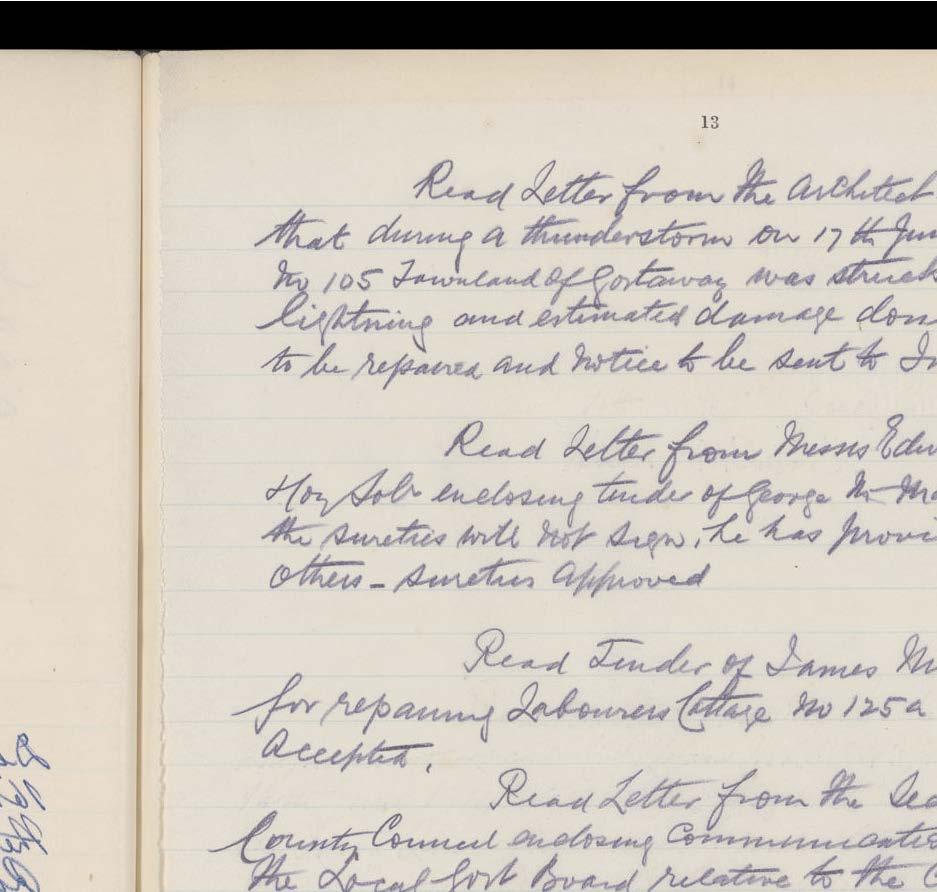 13
Read Letter from the Architect
that during a thunderstorm on 17th Jun
No 105 Townland of Gortaway was struck
lightning and estimated damage don
to be repaired and Notice to be sent to In
Read Letter from Messrs Edw
Hoy Solr enclosing tender of George Mc Ma
the sureties will not sign, he has provi
others - sureties approved
Read Tender of James Mc
for repairing Labourers Cottage No 125a
Accepted.
Read Letter from the Sec
County Council enclosing Communicatio
the Local Govt Board relative to the C